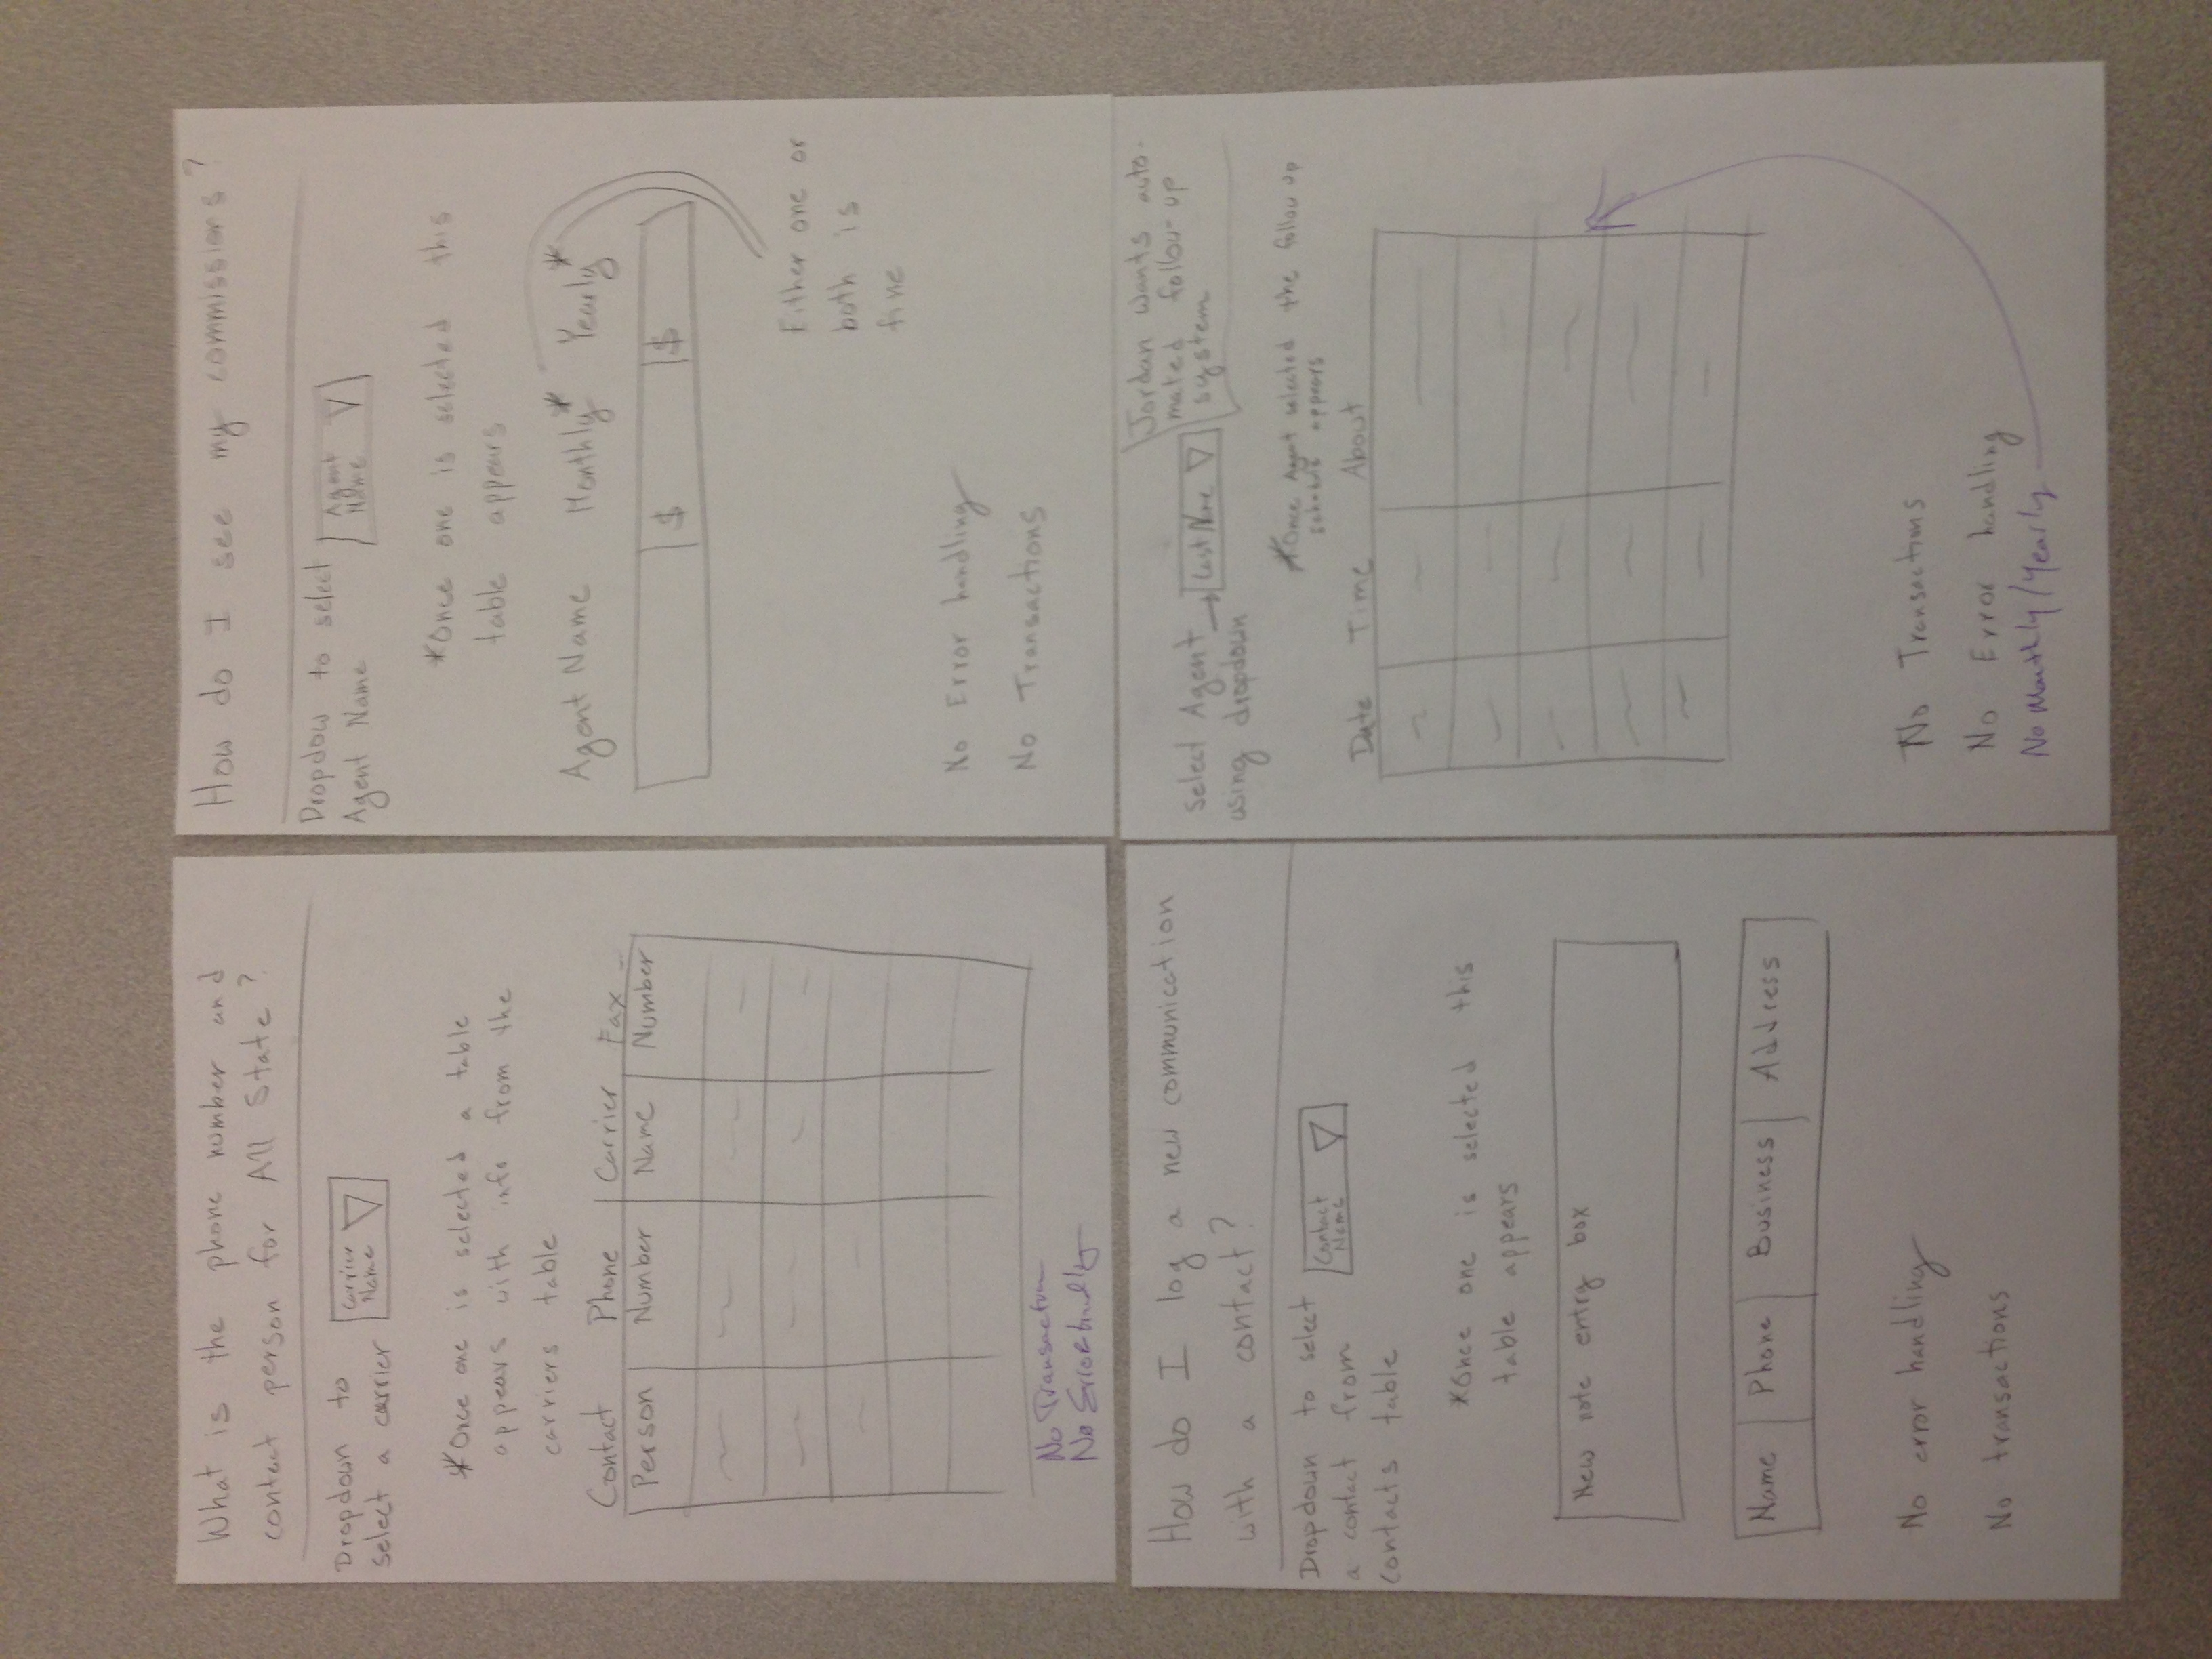 What is the phone number and
contact person for All State?
Dropdown to
select a carrier
Carrier
Name
*Once one is selected a table
appears with info from the
carriers table
Contact Phone Carrier Fax
Person Number Name Number
No Transaction
No Error handling
How do I see my commissions?
Dropdow to select
Agent Name
Agent
Name
*Once one is selected this
table appears
Agent Name Monthly* Yearly*
$ $
Either one or
both is
fine
No Error handling
No Transactions
How do I log a new communication
with a contact?
Dropdown to select
a contact from
contacts table
Contact
Name
*Once one is selected this
table appears
New note entry box
Name Phone Business Address
No error handling
No transactions
Jordan wants auto-
mated follow-up
system
Select Agent
using dropdown
Last Name
*Once Agent selected the follow up
schedule appears
Date Time About
No Transactions
No Error handling
No Monthly/Yearly